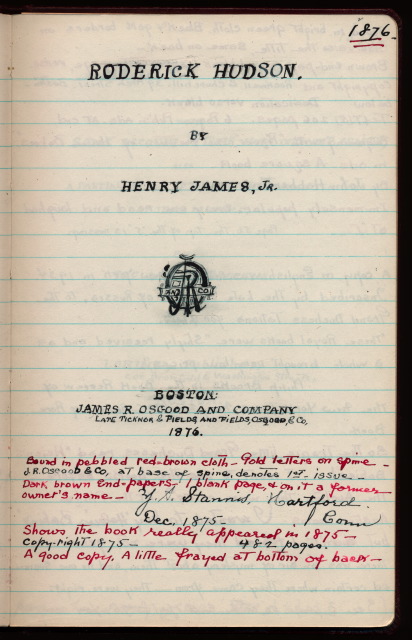 1876.
RODERICK HUDSON.
BY
HENRY JAMES, Jr.
JR
AND CO
BOSTON:
JAMES R. OSGOOD AND COMPANY
LATE TICKNOR & FIELDS, AND FIELDS, OSGOOD, & Co,
1876.
Bound in pebbled red-brown cloth - Gold letters on spine -
J.R. Osgood & Co, at base of spine, denotes 1st issue -
Dark brown end-papers, 1 blank page, & on it a former
owner's name - Stannis, Hartford
Dec, 1875 - Conn
Shows the book really appeared in 1875 -
Copy-right 1875 - 482 pages.
A good copy. A little frayed at bottom of back -